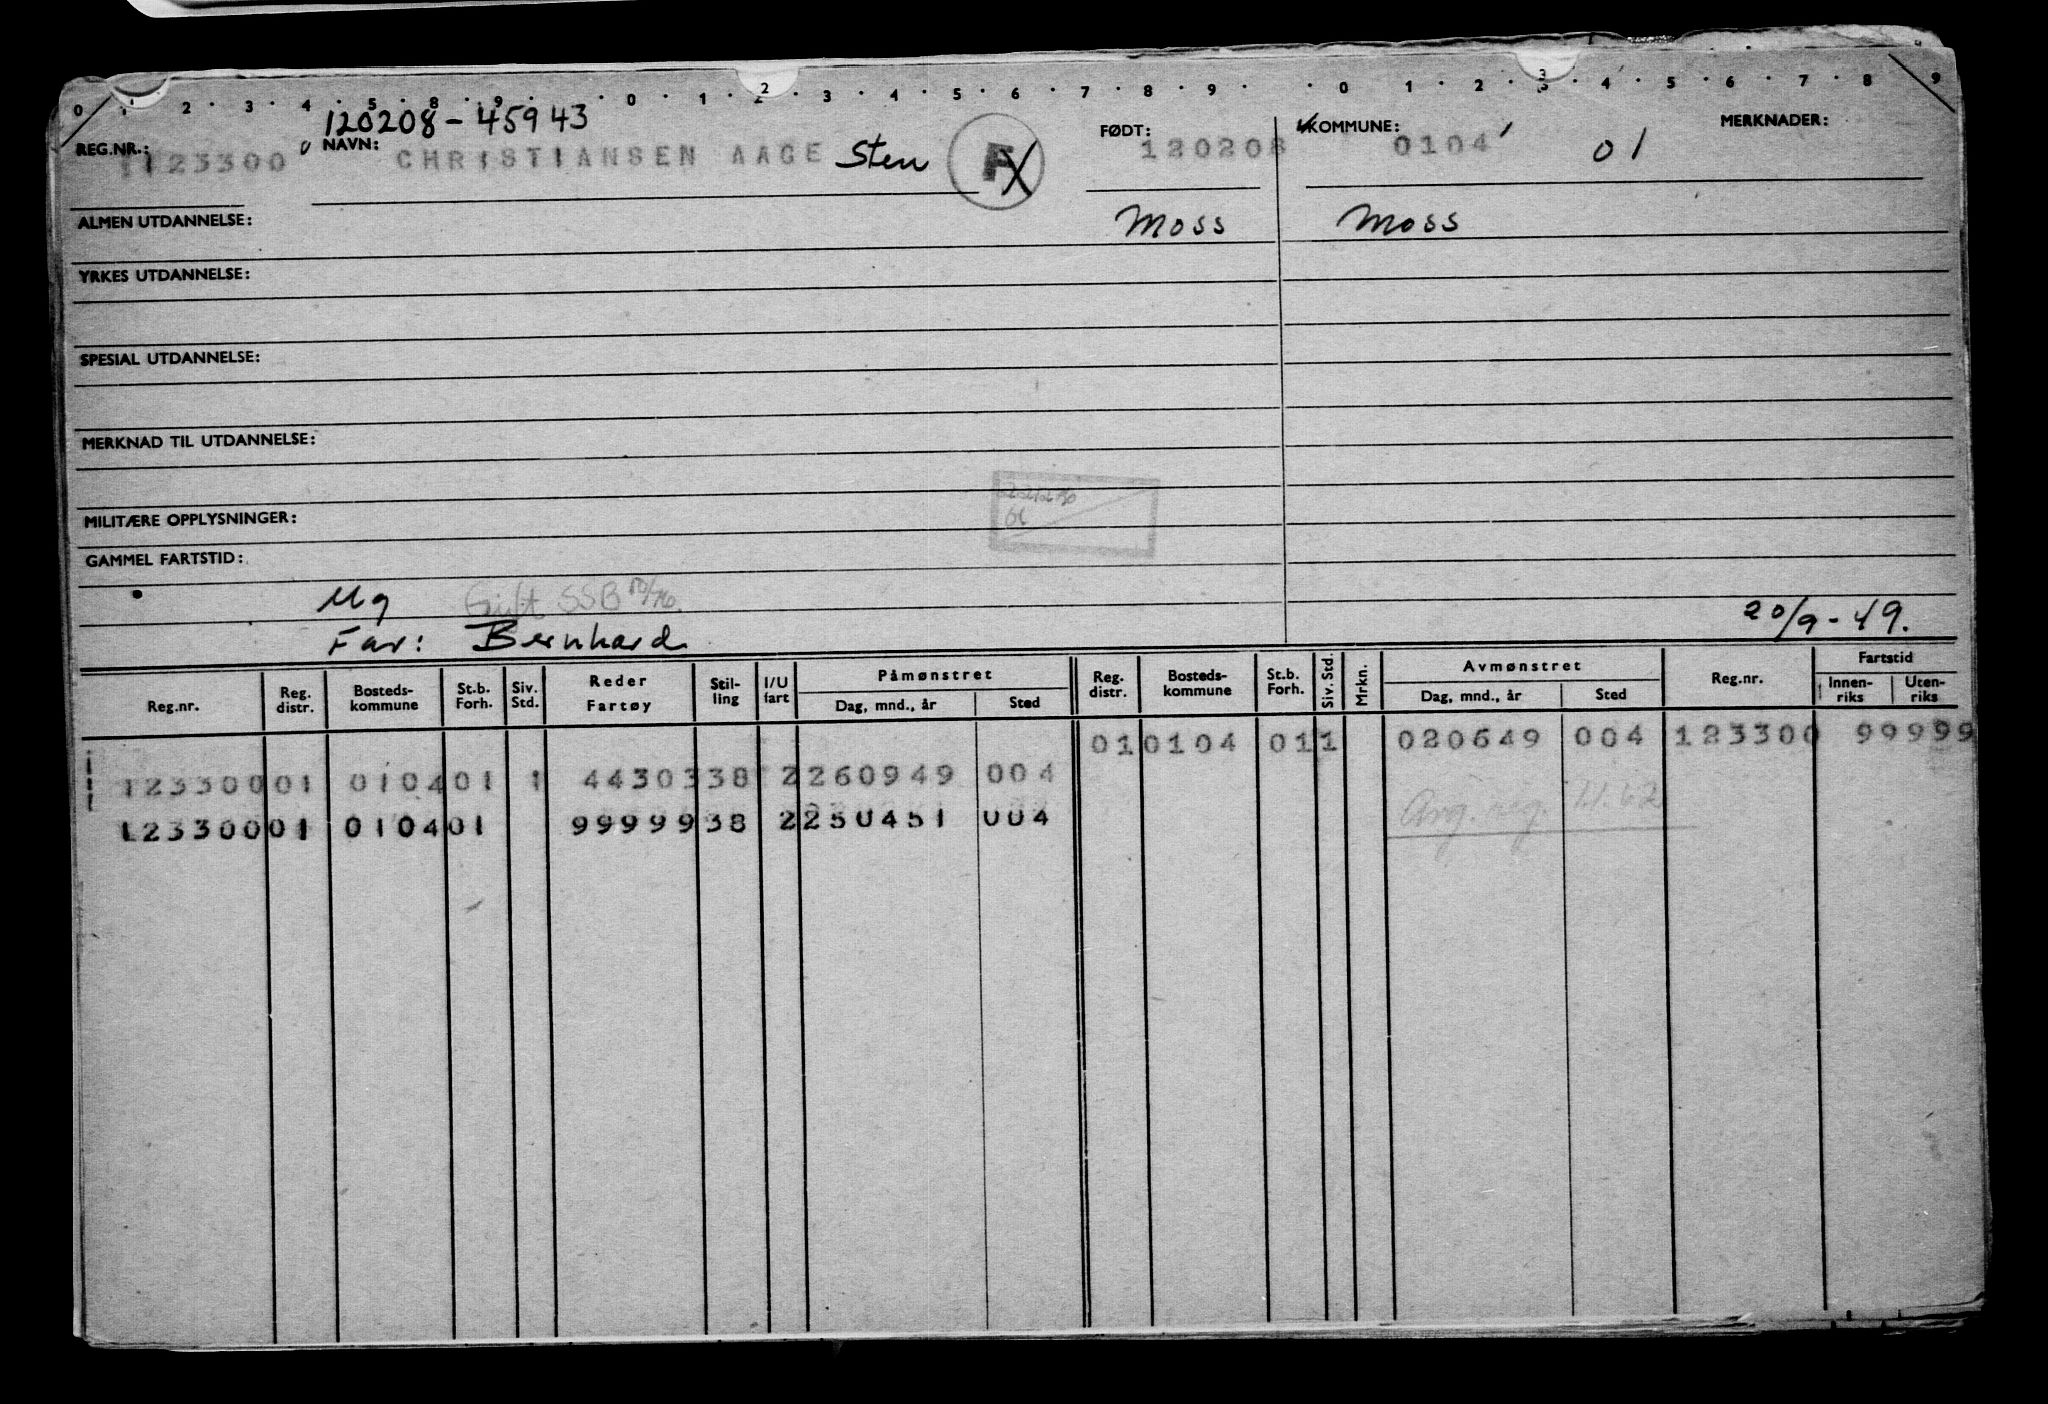 0 1 2 3 4 5 8 9 0 1 2 3 4 5 6 7 8 9 0 1 2 3 4 5 6 7 8 9
120208-45943
REG.NR.: 123300 NAVN: CHRISTIANSEN AAGE Sten F FØDT: 120208 KOMMUNE: 0104 01 MERKNADER:
ALMEN UTDANNELSE: Moss Moss
YRKES UTDANNELSE:
SPESIAL UTDANNELSE:
MERKNAD TIL UTDANNELSE:
MILITÆRE OPPLYSNINGER:
GAMMEL FARTSTID:
Ug Gift SSB 10/76.
Far: Bernhard 20/9-49.
Reg.nr. Reg. distr. Bosteds-kommune St.b. Forh. Siv. Std. Reder Fartøy Stil-ling I/U fart Påmønstret Dag, mnd., år Sted Reg. distr. Bosteds-kommune St.b. Forh. Siv. Std. Mrkn. Avmønstret Dag, mnd., år Sted Reg.nr. Fartstid Innen-riks Uten-riks
01 0104 01 1 020649 004 123300 99999
123300 01 0104 01 1 44303 38 2 260949 004
123300 01 0104 01 99999 38 2 250451 004